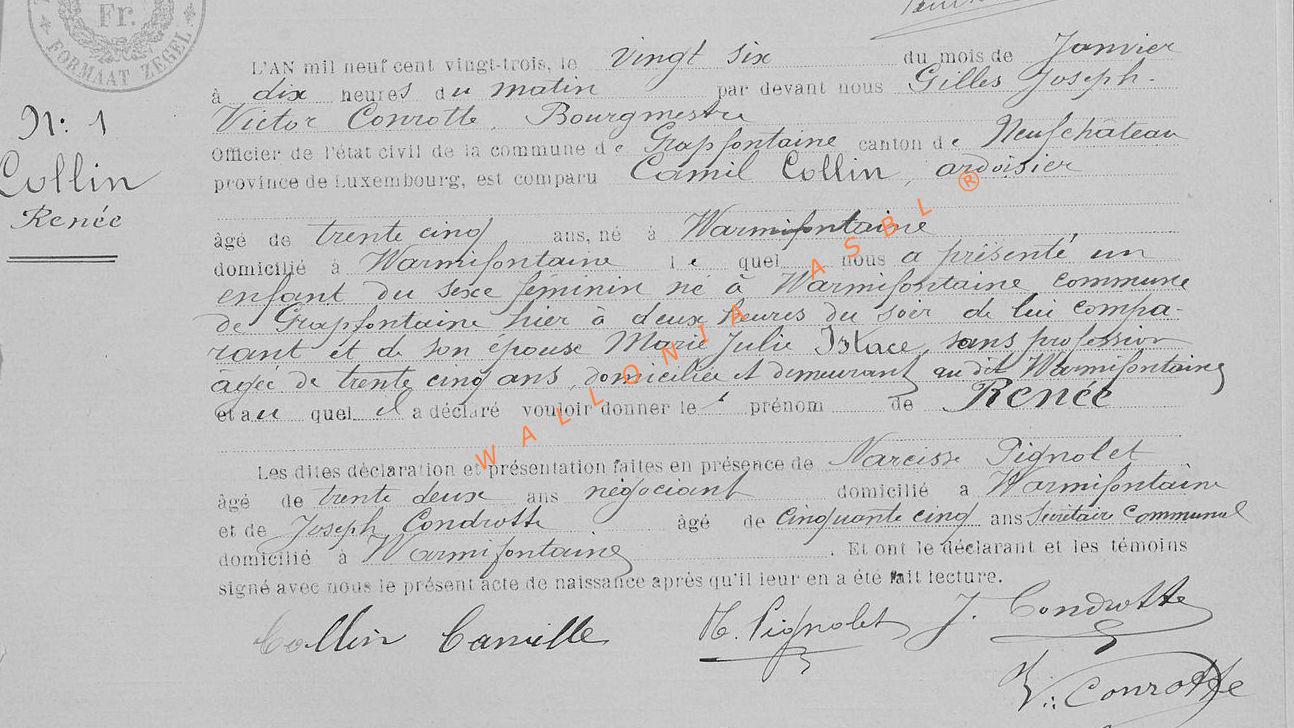 Fr.
FORMAAT ZEGEL
N: 1
Collin
Renée
L'AN mil neuf cent vingt-trois, le vingt six du mois de Janvier
à dix heures du matin par devant nous Gilles Joseph-
Victor Conrotte, Bourgmestre
Officier de l'état civil de la commune de Grapfontaine canton de Neufchâteau
province de Luxembourg, est comparu Camil Collin, ardoisier
âgé de trente cinq ans, né à Warmifontaine
domicilié à Warmifontaine lequel nous a présenté un
enfant du sexe féminin né à Warmifontaine commune
de Grapfontaine hier à deux heures du soir de lui compa-
rant et de son épouse Marie Julie Istace, sans profession
âgée de trente cinq ans, domiciliée et demeurant au dit Warmifontaine
et au quel il a déclaré vouloir donner le prénom de Renée
Les dites déclaration et présentation faites en présence de Narcisse Pignolet
âgé de trente deux ans négociant domicilié à Warmifontaine
et de Joseph Condrotte âgé de cinquante cinq ans Secrétaire Communal
domicilié à Warmifontaine. Et ont le déclarant et les témoins
signé avec nous le présent acte de naissance après qu'il leur en a été fait lecture.
Collin Camille N. Pignolet J. Condrotte
V. Conrotte
WALLONIA ASBL ®